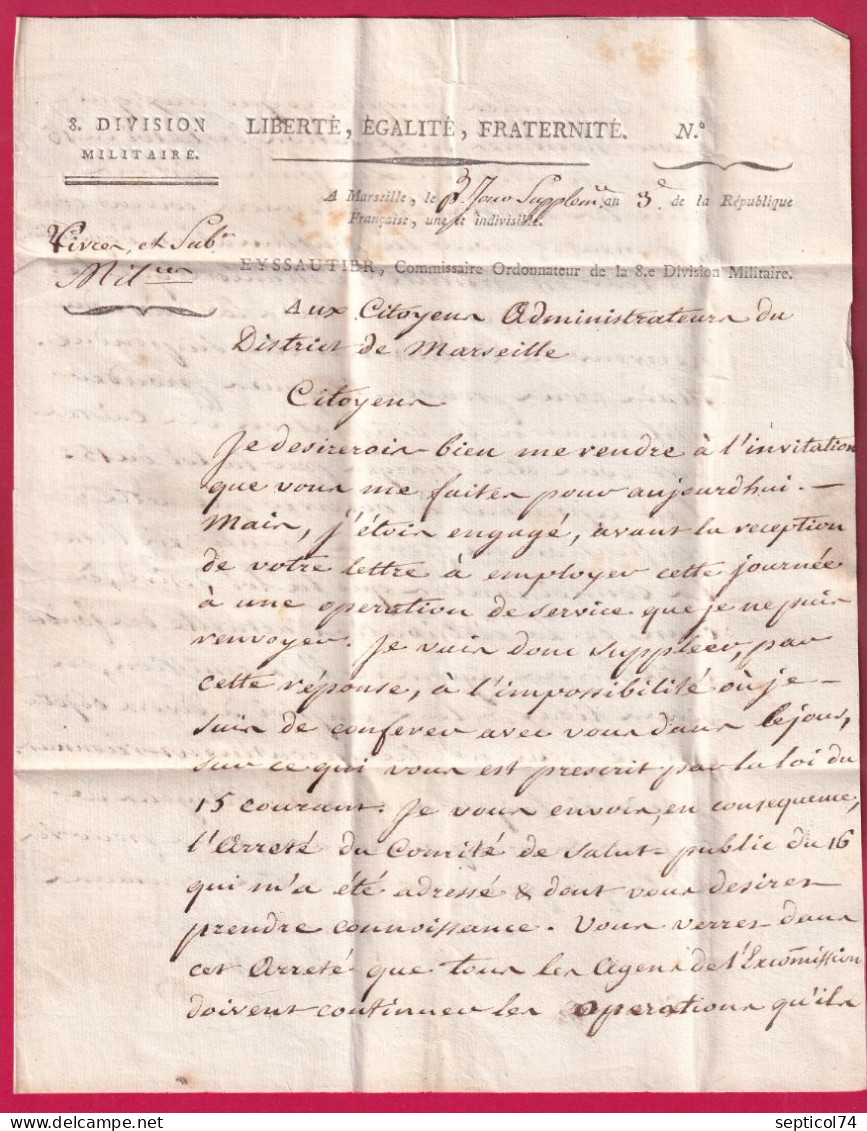 8. DIVISION
MILITAIRE.
LIBERTÉ, ÉGALITÉ, FRATERNITÉ.
N.º
A Marseille, le 3.e Jour Supplem.re an 3.e de la République
Française, une et indivisible.
Vivres et Sub.
Mil.res
EYSSAUTIER, Commissaire Ordonnateur de la 8.e Division Militaire.
Aux Citoyens Administrateurs du
District de Marseille
Citoyens
Je desirerois bien me rendre à l'invitation
que vous me faites pour aujourdhui. —
Mais, j'étois engagé, avant la reception
de votre lettre à employer cette journée
à une operation de service que je ne puis
renvoyer. Je vais donc suppléer, par
cette réponse, à l'impossibilité où je —
suis de conferer avec vous dans le jour,
sur ce qui vous est prescrit par la loi du
15 courant. Je vous envois, en consequence,
l'Arreté du Comité de Salut-public du 16
qui m'a été adressé & dont vous desirez
prendre connoissance. Vous verrez dans
cet Arreté que tous les Agens de l'Excommission
doivent continuer les operations qu'ils
delcampe.net
septicol74